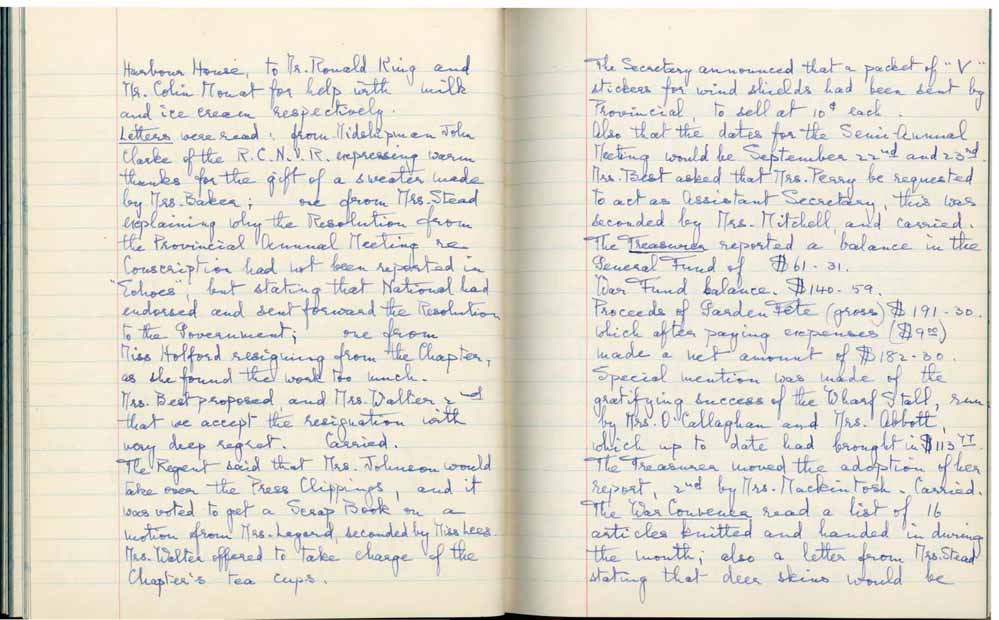 Harbour House, to Mr. Ronald King and
Mr. Colin Mouat for help with milk
and ice cream respectively.
Letters were read: from Midshipman John
Clarke of the R.C.N.V.R. expressing warm
thanks for the gift of a sweater made
by Mrs. Baker; one from Mrs. Stead
explaining why the Resolution from
the Provincial Annual Meeting re
Conscription had not been reported in
"Echoes", but stating that National had
endorsed and sent forward the Resolution
to the Government; one from
Miss Holford resigning from the Chapter,
as she found the work too much.
Mrs. Best proposed and Mrs. Walter 2nd
that we accept the resignation with
very deep regret. Carried.
The Regent said that Mrs. Johnson would
take over the Press Clippings, and it
was voted to get a Scrap Book on a
motion from Mrs. Layard, seconded by Miss Lees.
Mrs. Walter offered to take charge of the
Chapter's tea cups.
The Secretary announced that a packet of "V"
stickers for wind shields had been sent by
Provincial, to sell at 10¢ each.
Also that the dates for the Semi-Annual
Meeting would be September 22nd and 23rd.
Mrs. Best asked that Mrs. Perry be requested
to act as Assistant Secretary, this was
seconded by Mrs. Mitchell, and carried.
The Treasurer reported a balance in the
General Fund of $61-31.
War Fund balance. $140-59.
Proceeds of Garden Fête (gross) $191-30.
which after paying expenses ($9 00)
made a net amount of $182-30.
Special mention was made of the
gratifying success of the Wharf Stall, run
by Mrs. O'Callaghan and Mrs. Abbott,
which up to date had brought in $113
The Treasurer moved the adoption of her
report, 2nd by Mrs. Mackintosh. Carried.
The War Convener read a list of 16
articles knitted and handed in during
the month; also a letter from Mrs. Stead
stating that deer skins would be